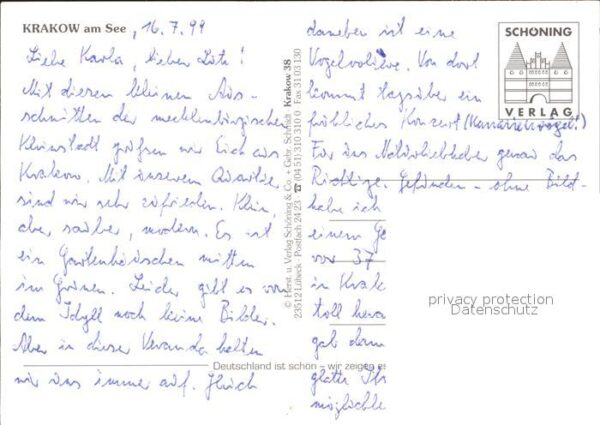 KRAKOW am See, 16.7.99
Liebe Karla, lieber Lutz!
Mit diesen kleinen Aus-
schnitten der mecklenburgischen
Kleinstadt grüßen wir Euch aus
Krakow. Mit unserem Quartier
sind wir sehr zufrieden. Klein,
aber sauber, modern. Es ist
ein Gartenhäuschen mitten
im Grünen. Leider gibt es von
dem Idyll noch keine Bilder.
Aber in dieser Veranda halten
wir uns immer auf. Gleich
© Herst. u. Verlag Schöning & Co. + Gebr. Schmidt Krakow 38
23512 Lübeck - Postfach 24 23 - ☎ (04 51) 310 310 0 Fax 31 03 130
Deutschland ist schön – wir zeigen es
daneben ist eine
Vogelvoliere. Von dort
kommt tagsüber ein
fröhliches Konzert (Kanarienvögel!)
Für uns Naturliebhaber genau das
Richtige. Gefunden – ohne Bild-
habe ich
einem Ge
vor 37
in Krak
toll hera
gab dam
glatte
möglichke
SCHÖNING
VERLAG
privacy protection
Datenschutz